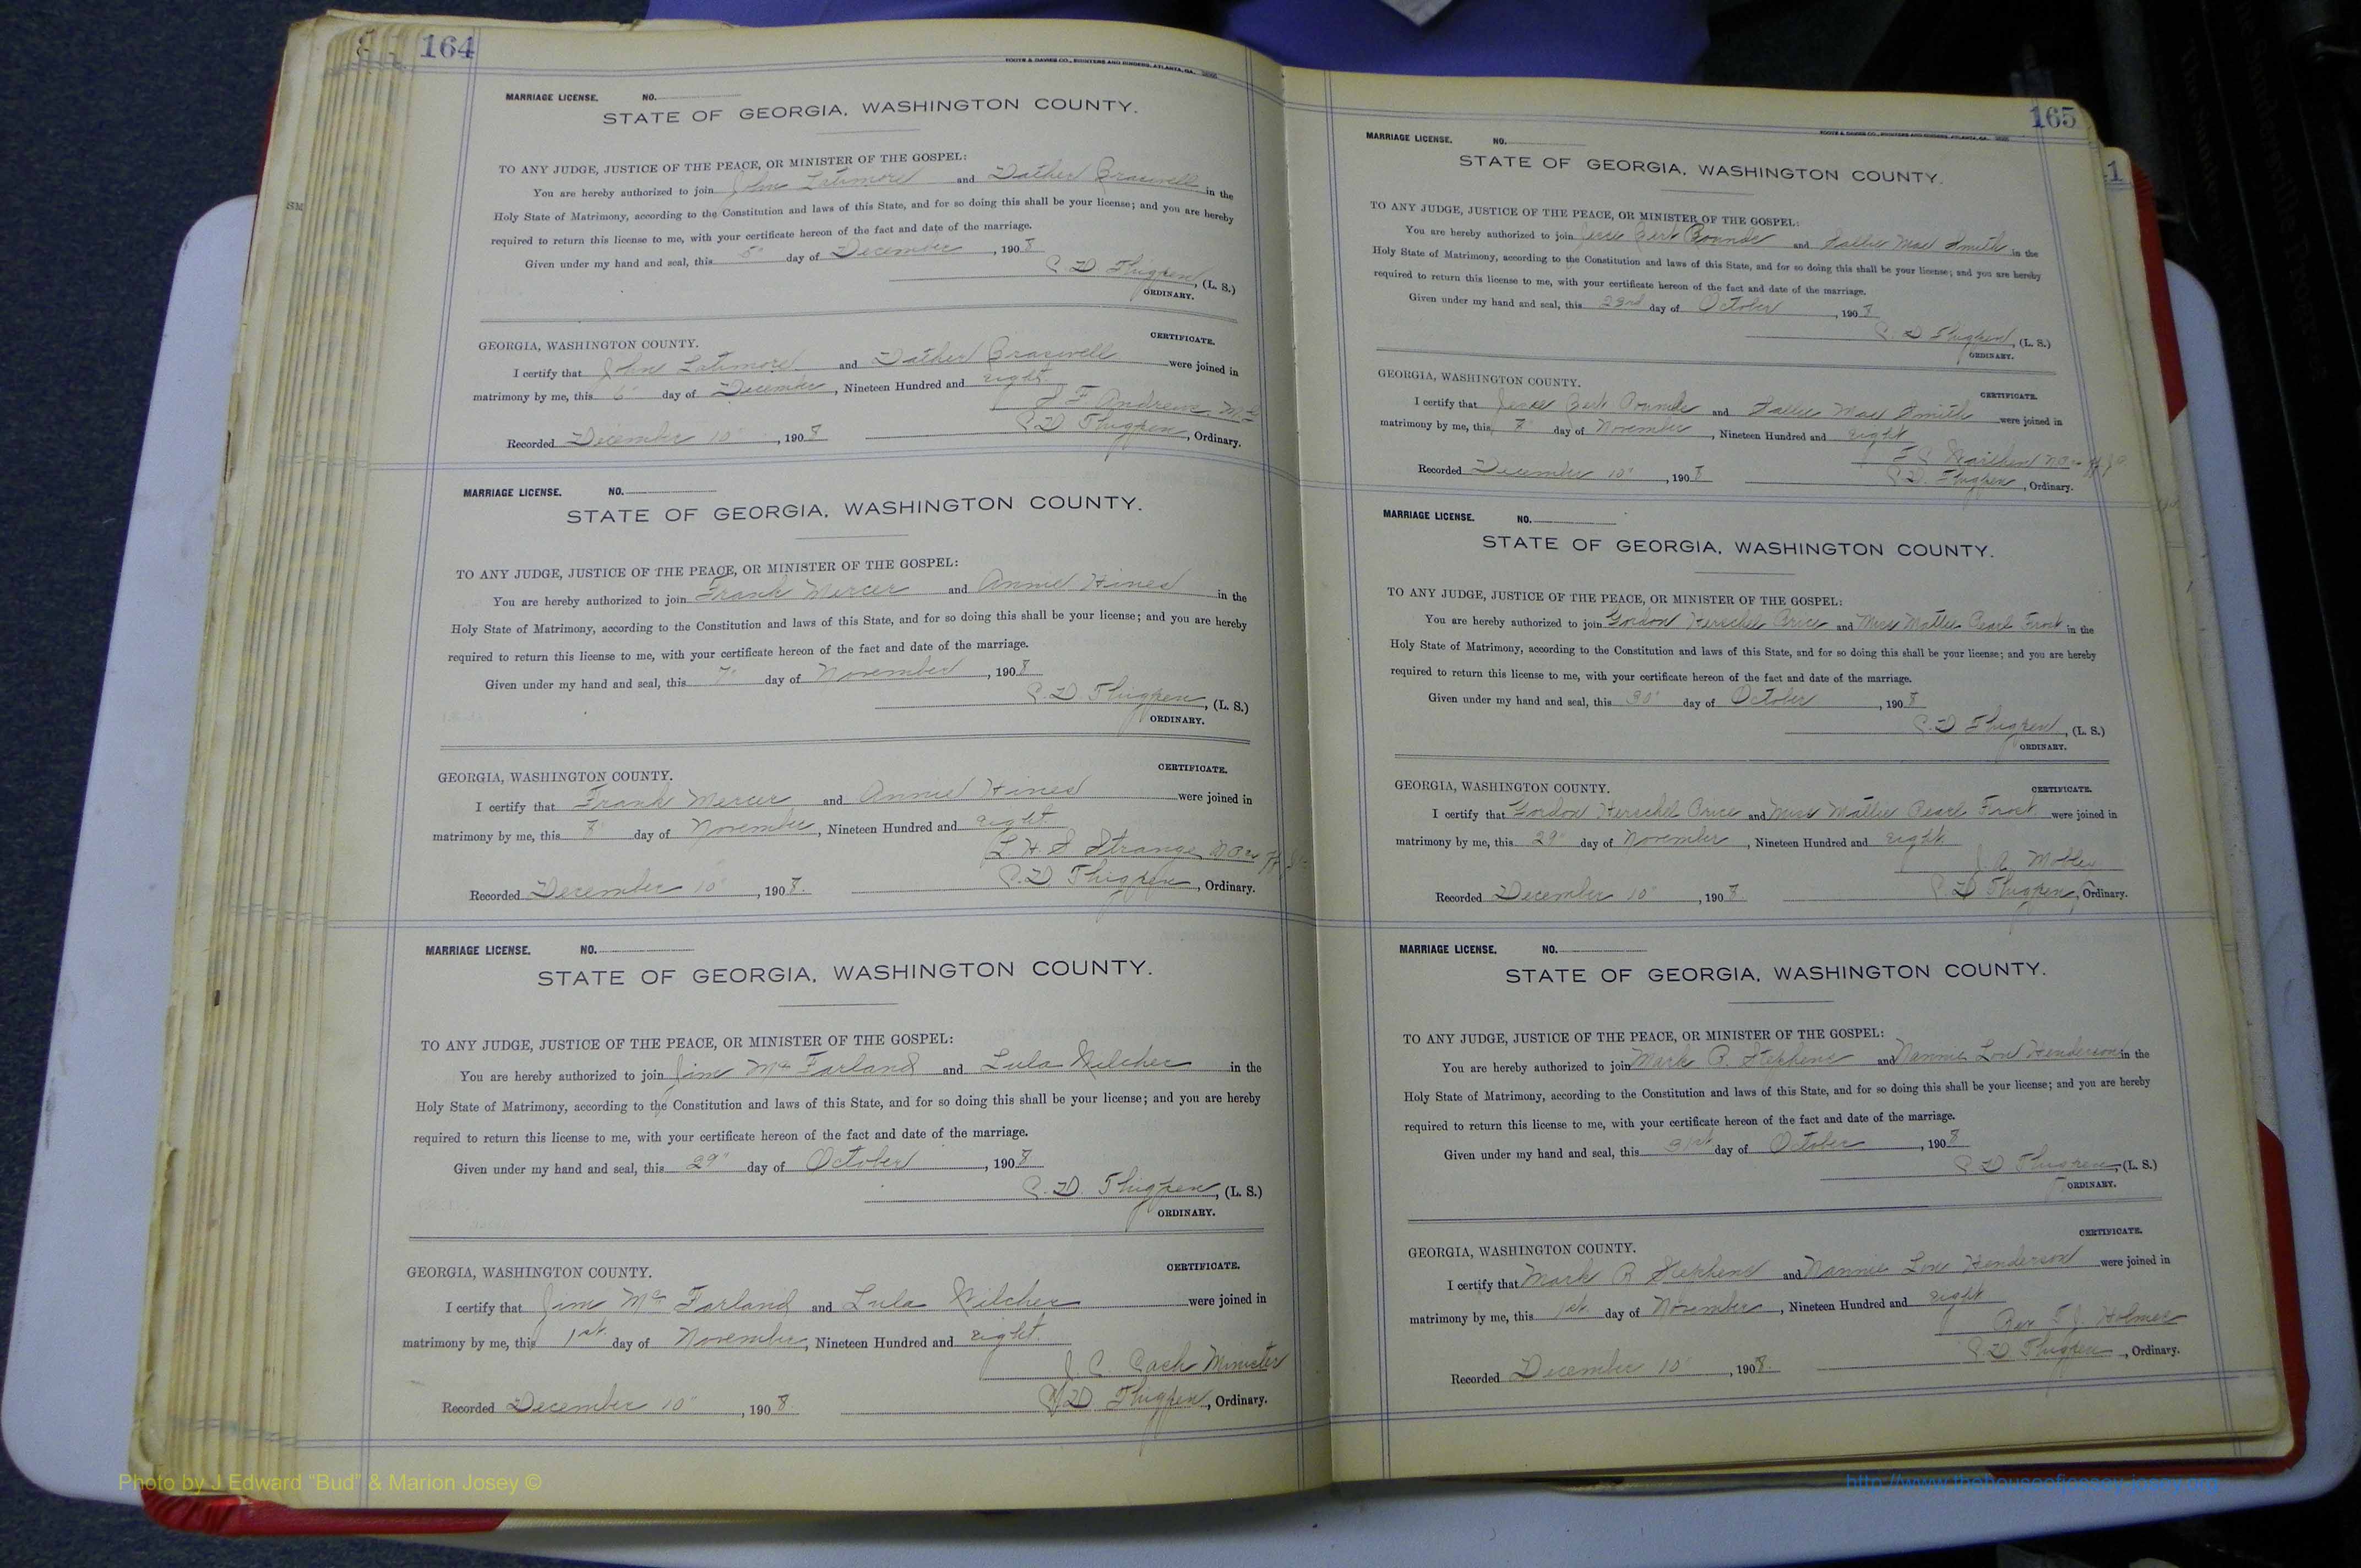 164
FOOTE & DAVIES CO., PRINTERS AND BINDERS, ATLANTA, GA.
MARRIAGE LICENSE. NO.
STATE OF GEORGIA, WASHINGTON COUNTY.
TO ANY JUDGE, JUSTICE OF THE PEACE, OR MINISTER OF THE GOSPEL:
You are hereby authorized to join John Latimore and Dather Braswell in the
Holy State of Matrimony, according to the Constitution and laws of this State, and for so doing this shall be your license; and you are hereby
required to return this license to me, with your certificate hereon of the fact and date of the marriage.
Given under my hand and seal, this 5" day of December, 1908
P. D. Thigpen, (L. S.)
ORDINARY.
CERTIFICATE.
GEORGIA, WASHINGTON COUNTY.
I certify that John Latimore and Dather Braswell were joined in
matrimony by me, this 6" day of December, Nineteen Hundred and eight.
S F Andrews, M.G.
Recorded December 10", 1908 P D Thigpen, Ordinary.
MARRIAGE LICENSE. NO.
STATE OF GEORGIA, WASHINGTON COUNTY.
TO ANY JUDGE, JUSTICE OF THE PEACE, OR MINISTER OF THE GOSPEL:
You are hereby authorized to join Frank Mercer and Annie Hines in the
Holy State of Matrimony, according to the Constitution and laws of this State, and for so doing this shall be your license; and you are hereby
required to return this license to me, with your certificate hereon of the fact and date of the marriage.
Given under my hand and seal, this 7" day of November, 1908
P. D. Thigpen, (L. S.)
ORDINARY.
CERTIFICATE.
GEORGIA, WASHINGTON COUNTY.
I certify that Frank Mercer and Annie Hines were joined in
matrimony by me, this day of November, Nineteen Hundred and eight.
L. H. S Strange
Recorded December 10", 1908. P. D Thigpen, Ordinary.
MARRIAGE LICENSE. NO.
STATE OF GEORGIA, WASHINGTON COUNTY.
TO ANY JUDGE, JUSTICE OF THE PEACE, OR MINISTER OF THE GOSPEL:
You are hereby authorized to join Jim McFarland and Lula Wilcher in the
Holy State of Matrimony, according to the Constitution and laws of this State, and for so doing this shall be your license; and you are hereby
required to return this license to me, with your certificate hereon of the fact and date of the marriage.
Given under my hand and seal, this 29" day of October, 1908
P. D. Thigpen, (L. S.)
ORDINARY.
CERTIFICATE.
GEORGIA, WASHINGTON COUNTY.
I certify that Jim McFarland and Lula Wilcher were joined in
matrimony by me, this 1st. day of November, Nineteen Hundred and eight.
J. C. Cach Minister
Recorded December 10", 1908. P D Thigpen, Ordinary.
165
FOOTE & DAVIES CO., PRINTERS AND BINDERS, ATLANTA, GA.
MARRIAGE LICENSE. NO.
STATE OF GEORGIA, WASHINGTON COUNTY.
TO ANY JUDGE, JUSTICE OF THE PEACE, OR MINISTER OF THE GOSPEL:
You are hereby authorized to join Jesse Bert Pounds and Sallie Mae Smith in the
Holy State of Matrimony, according to the Constitution and laws of this State, and for so doing this shall be your license; and you are hereby
required to return this license to me, with your certificate hereon of the fact and date of the marriage.
Given under my hand and seal, this 23rd day of October, 1908
P. D Thigpen, (L. S.)
ORDINARY.
CERTIFICATE.
GEORGIA, WASHINGTON COUNTY.
I certify that Jesse Bert Pounds and Sallie Mae Smith were joined in
matrimony by me, this day of November, Nineteen Hundred and eight.
Recorded December 10", 1908 P. D. Thigpen, Ordinary.
MARRIAGE LICENSE. NO.
STATE OF GEORGIA, WASHINGTON COUNTY.
TO ANY JUDGE, JUSTICE OF THE PEACE, OR MINISTER OF THE GOSPEL:
You are hereby authorized to join Gordon Herschel Price and Miss Mattie Pearl Frost in the
Holy State of Matrimony, according to the Constitution and laws of this State, and for so doing this shall be your license; and you are hereby
required to return this license to me, with your certificate hereon of the fact and date of the marriage.
Given under my hand and seal, this 30" day of October, 1908
P. D Thigpen, (L. S.)
ORDINARY.
CERTIFICATE.
GEORGIA, WASHINGTON COUNTY.
I certify that Gordon Herschel Price and Miss Mattie Pearl Frost were joined in
matrimony by me, this 29" day of November, Nineteen Hundred and eight.
J. A. Mobley
Recorded December 10", 1908. P. D Thigpen, Ordinary.
MARRIAGE LICENSE. NO.
STATE OF GEORGIA, WASHINGTON COUNTY.
TO ANY JUDGE, JUSTICE OF THE PEACE, OR MINISTER OF THE GOSPEL:
You are hereby authorized to join Mark P. Stephens and Nannie Lou Henderson in the
Holy State of Matrimony, according to the Constitution and laws of this State, and for so doing this shall be your license; and you are hereby
required to return this license to me, with your certificate hereon of the fact and date of the marriage.
Given under my hand and seal, this 31st day of October, 1908
P D Thigpen, (L. S.)
ORDINARY.
CERTIFICATE.
GEORGIA, WASHINGTON COUNTY.
I certify that Mark P Stephens and Nannie Lou Henderson were joined in
matrimony by me, this 1st. day of November, Nineteen Hundred and eight
Rev T J Holmes
Recorded December 10", 1908. P. D Thigpen, Ordinary.
Photo by J Edward "Bud" & Marion Josey ©
http://www.thehouseofjossey-josey.org